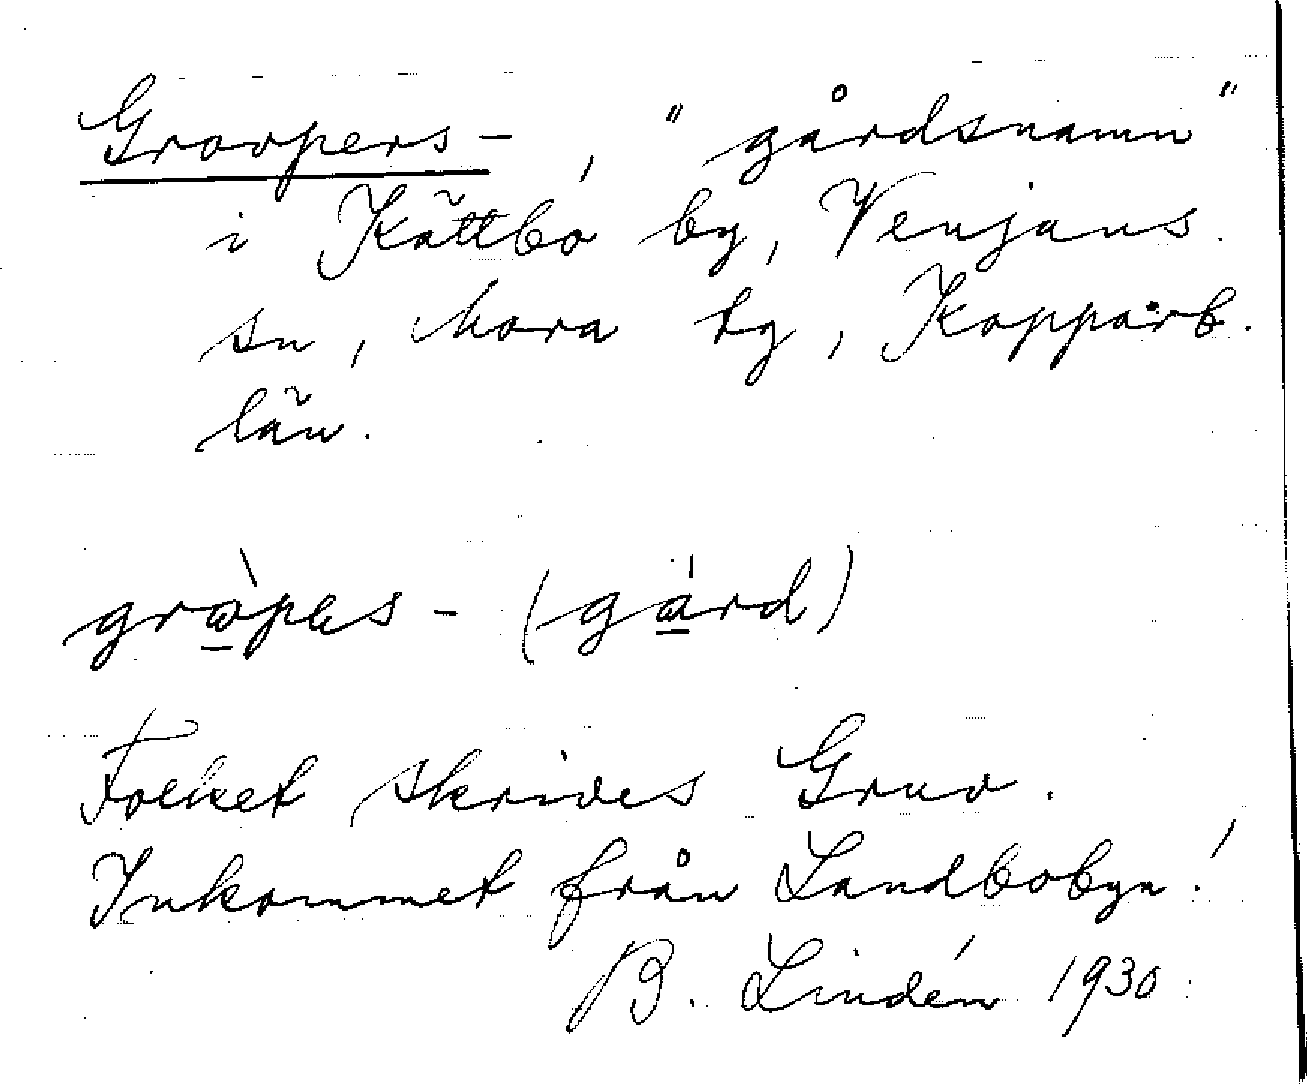 Groopers-, "gårdsnamn"
i Kättbo by, Venjans
sn, Mora tg, Kopparb.
län.
gròpes-(gárd)
Folket skrives Gruv.
Inkommet från Landbobyn!
B. Lindén 1930.